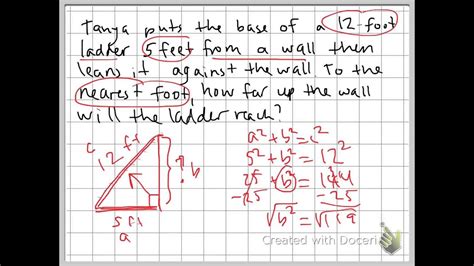 Tanya puts the base of a 12-foot
ladder 5 feet from a wall then
leans it against the wall. To the
nearest foot, how far up the wall
will the ladder reach?
c 12 ft ? b
5 ft
a
a² + b² = c²
5² + b² = 12²
25 + b² = 144
-25 -25
√b² = √119
Created with Doceri